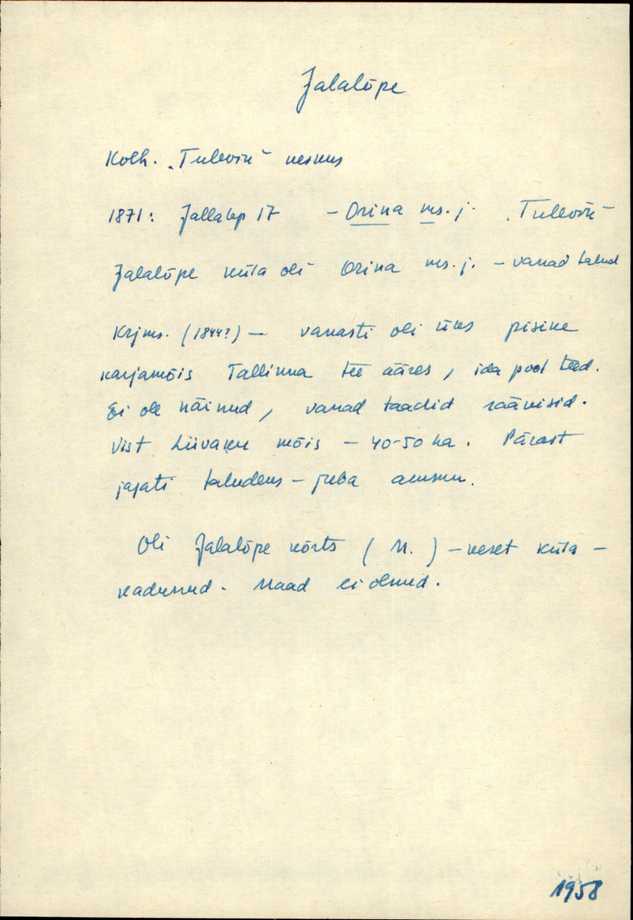 Jalalõpe
Kolh. „Tulevik" keskus
1871: Jallalep 17 - Orina ms. j. „Tulevik"
Jalalõpe küla oli Orina ms. j. - vanad talud
Krjms. (1844?) - vanasti oli üks pisike
karjamõis Tallinna tee ääres, ida pool teed.
Ei ole näinud, vanad taadid rääkisid.
Vist Liivaku mõis - 40-50 ha. Pärast
jagati taludeks - juba ammu.
Oli Jalalõpe kõrts (M.) - keset küla -
kadunud. Maad ei olnud.
1958